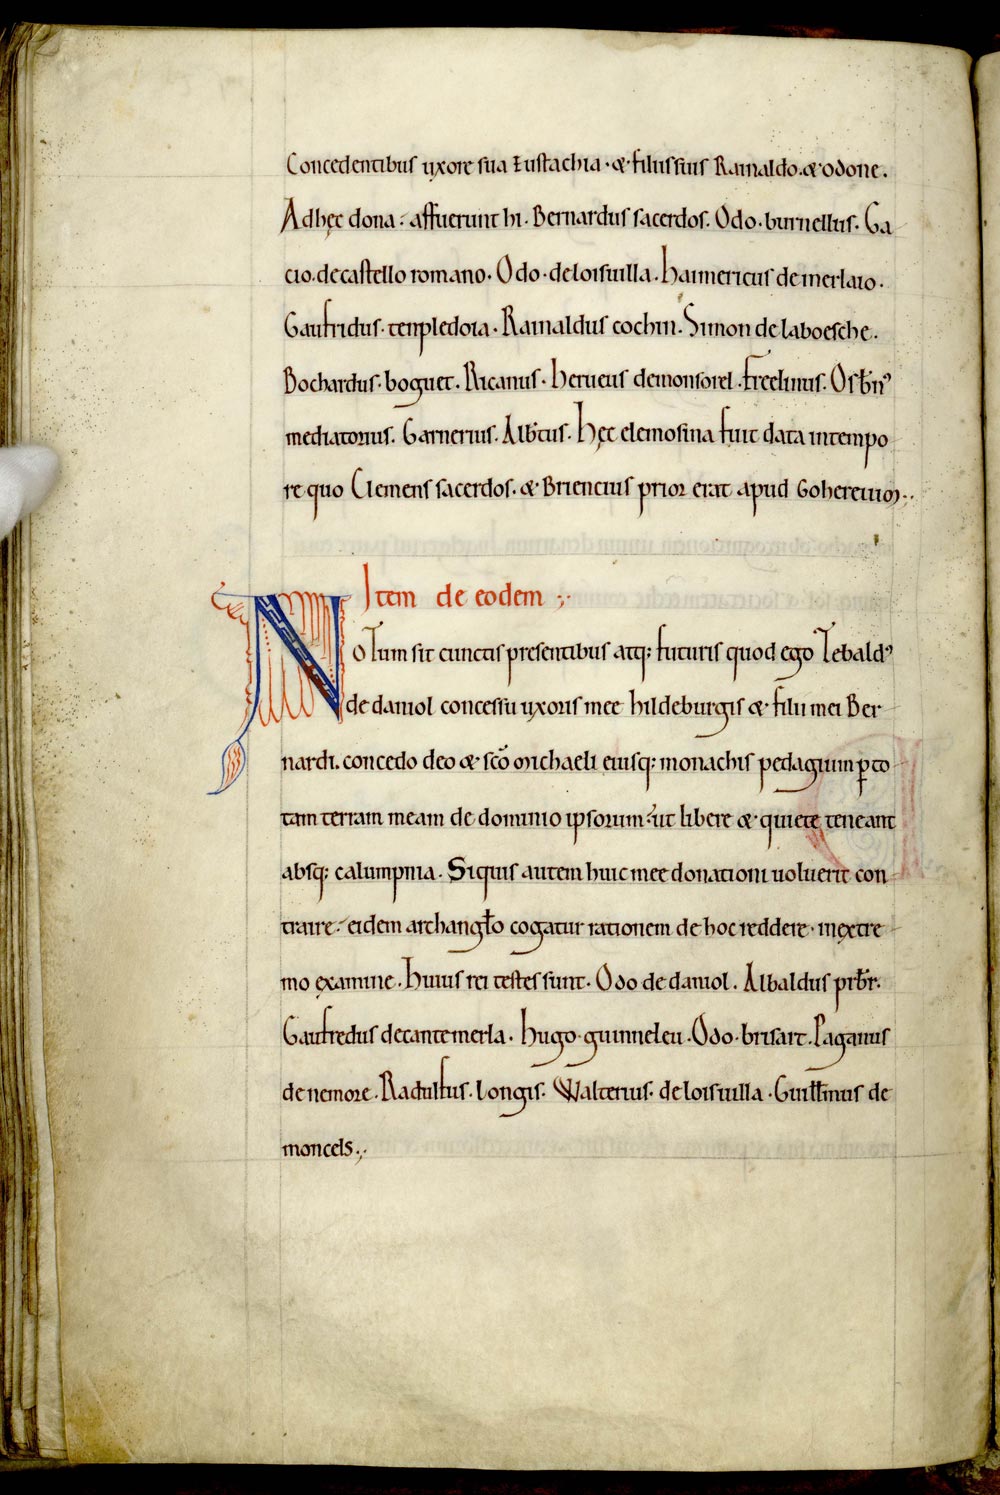 Concedentibus uxore sua Eustachia · & filiis suis Rainaldo. & odone.
Ad hęc dona : affuerunt hi. Bernardus sacerdos. Odo · burnellus. Ga
cio. de castello romano. Odo · de loisuilla. haimericus de merlaio.
Gaufridus. tenpledoia. Rainaldus cochin. Simon de laboesche.
Bochardus. boguer. Ricanus. herueus de monsorel. Frelinus. Osb̄n᾽
mediatorius. Garnerius. Alb̄tus. Hęc elemosina fuit data in tempo
re quo Clemens sacerdos. & Briencius prior erat apud Gohereium.
Item de eodem
Notum sit cunctis presentibus atq; futuris quod ego Tebald᾽
de daniol concessu uxoris mee hildeburgis & filii mei Ber
nardi. concedo deo & sc̄o michaeli eiusq; monachis pedagium ꝑ to
tam terram meam de dominio ipsorum : ut libere & quiete teneant
absq; calumpnia. Siquis autem huic mee donationi uoluerit con
traire : eidem archangl̄o cogatur rationem de hoc reddere · in extre
mo examine. Huius rei testes sunt. Odo de daniol. Albaldus prb̄r.
Gaufredus de cantemerla. hugo · guinneleu. Odo · brisart. Paganus
de nemore. Radulfus. longis. Walterius. de loisuilla. Guill̄mus de
moncels.